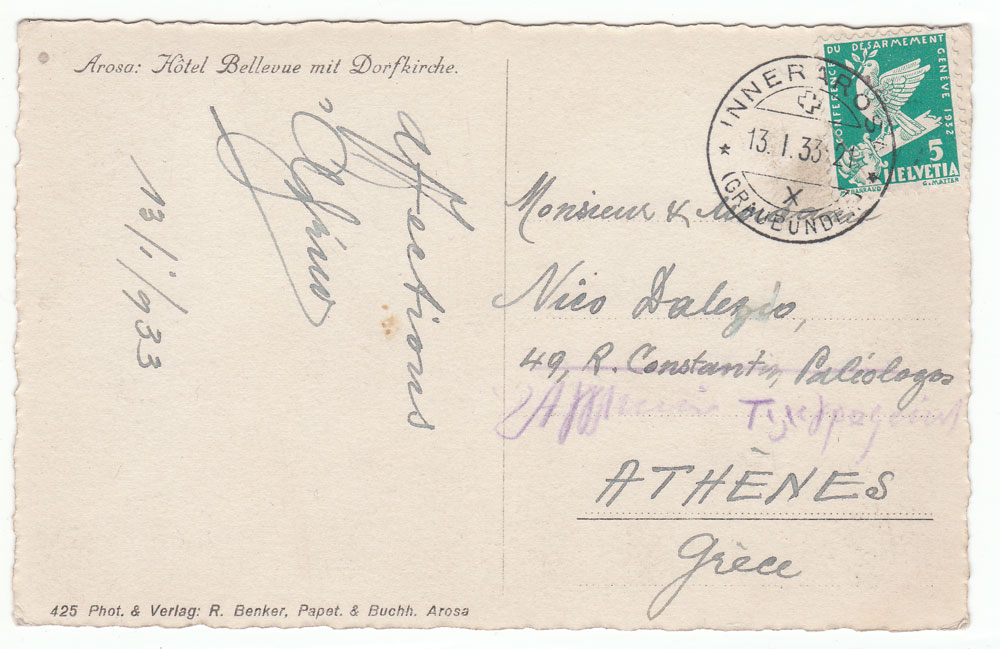 Arosa: Hôtel Bellevue mit Dorfkirche.
Affections
13/1/933
425 Phot. & Verlag: R. Benker, Papet. & Buchh. Arosa
INNERAROSA
13. I. 33
X
(GRAUBÜNDEN)
CONFERENCE DU DÉSARMEMENT GENÈVE 1932
5
HELVETIA
G. MATTER
Monsieur & Madame
Nico Dalezio,
49, R. Constantin Paléologos
ATHÈNES
Grèce